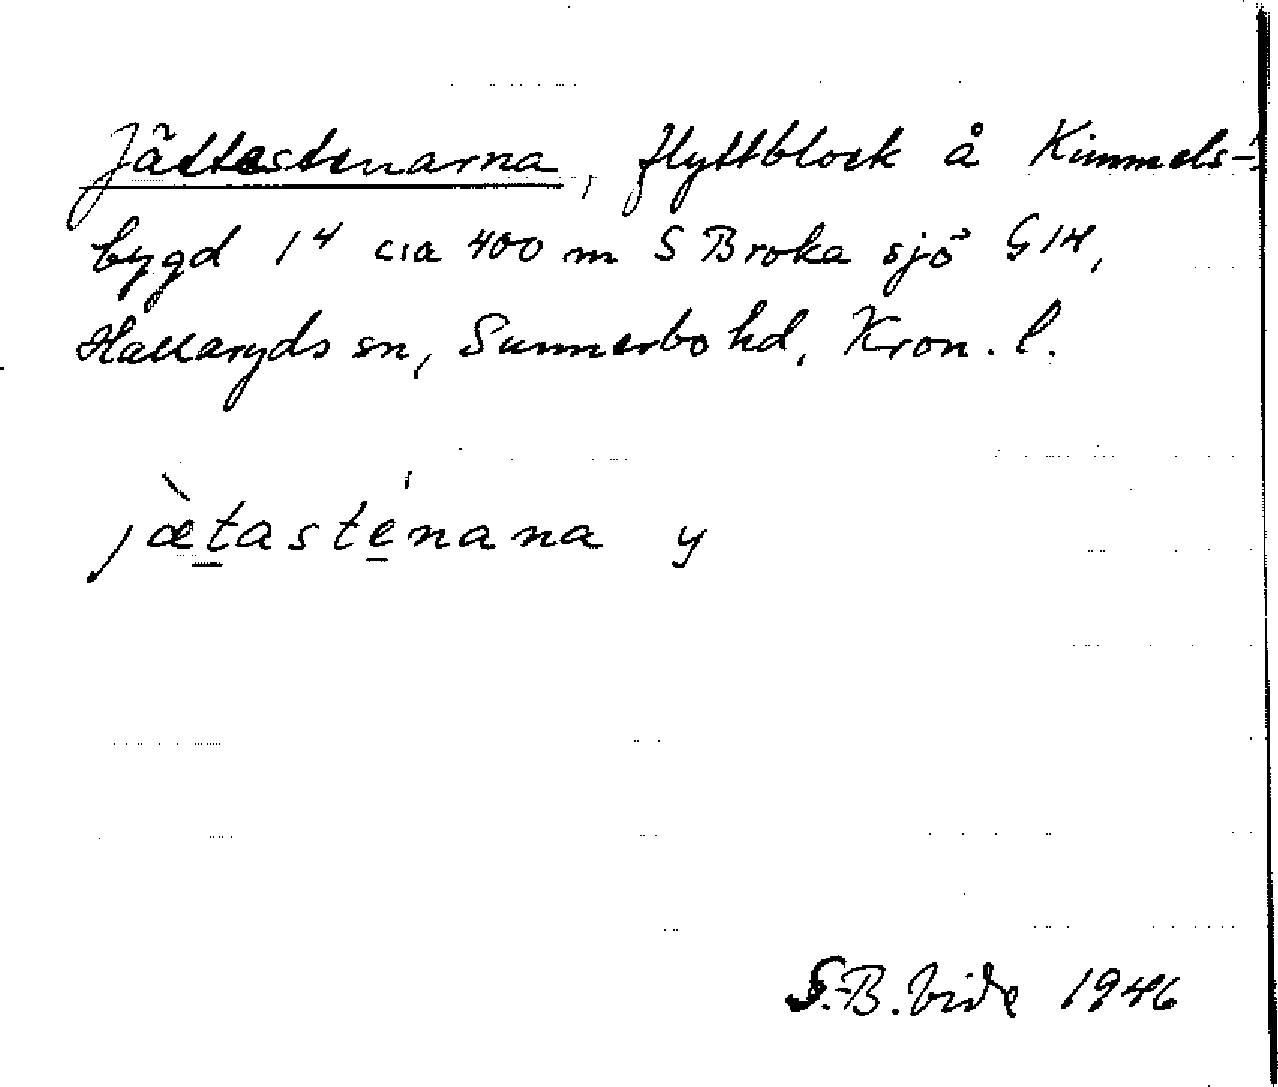 Jättestenarna, flyttblock å Kimmels-
bygd 1⁴ cia 400 m S Broka sjö G14,
Hallaryds sn, Sunnerbo hd, Kron. l.
jæ̀tasténana y
S.-B. Vide 1946